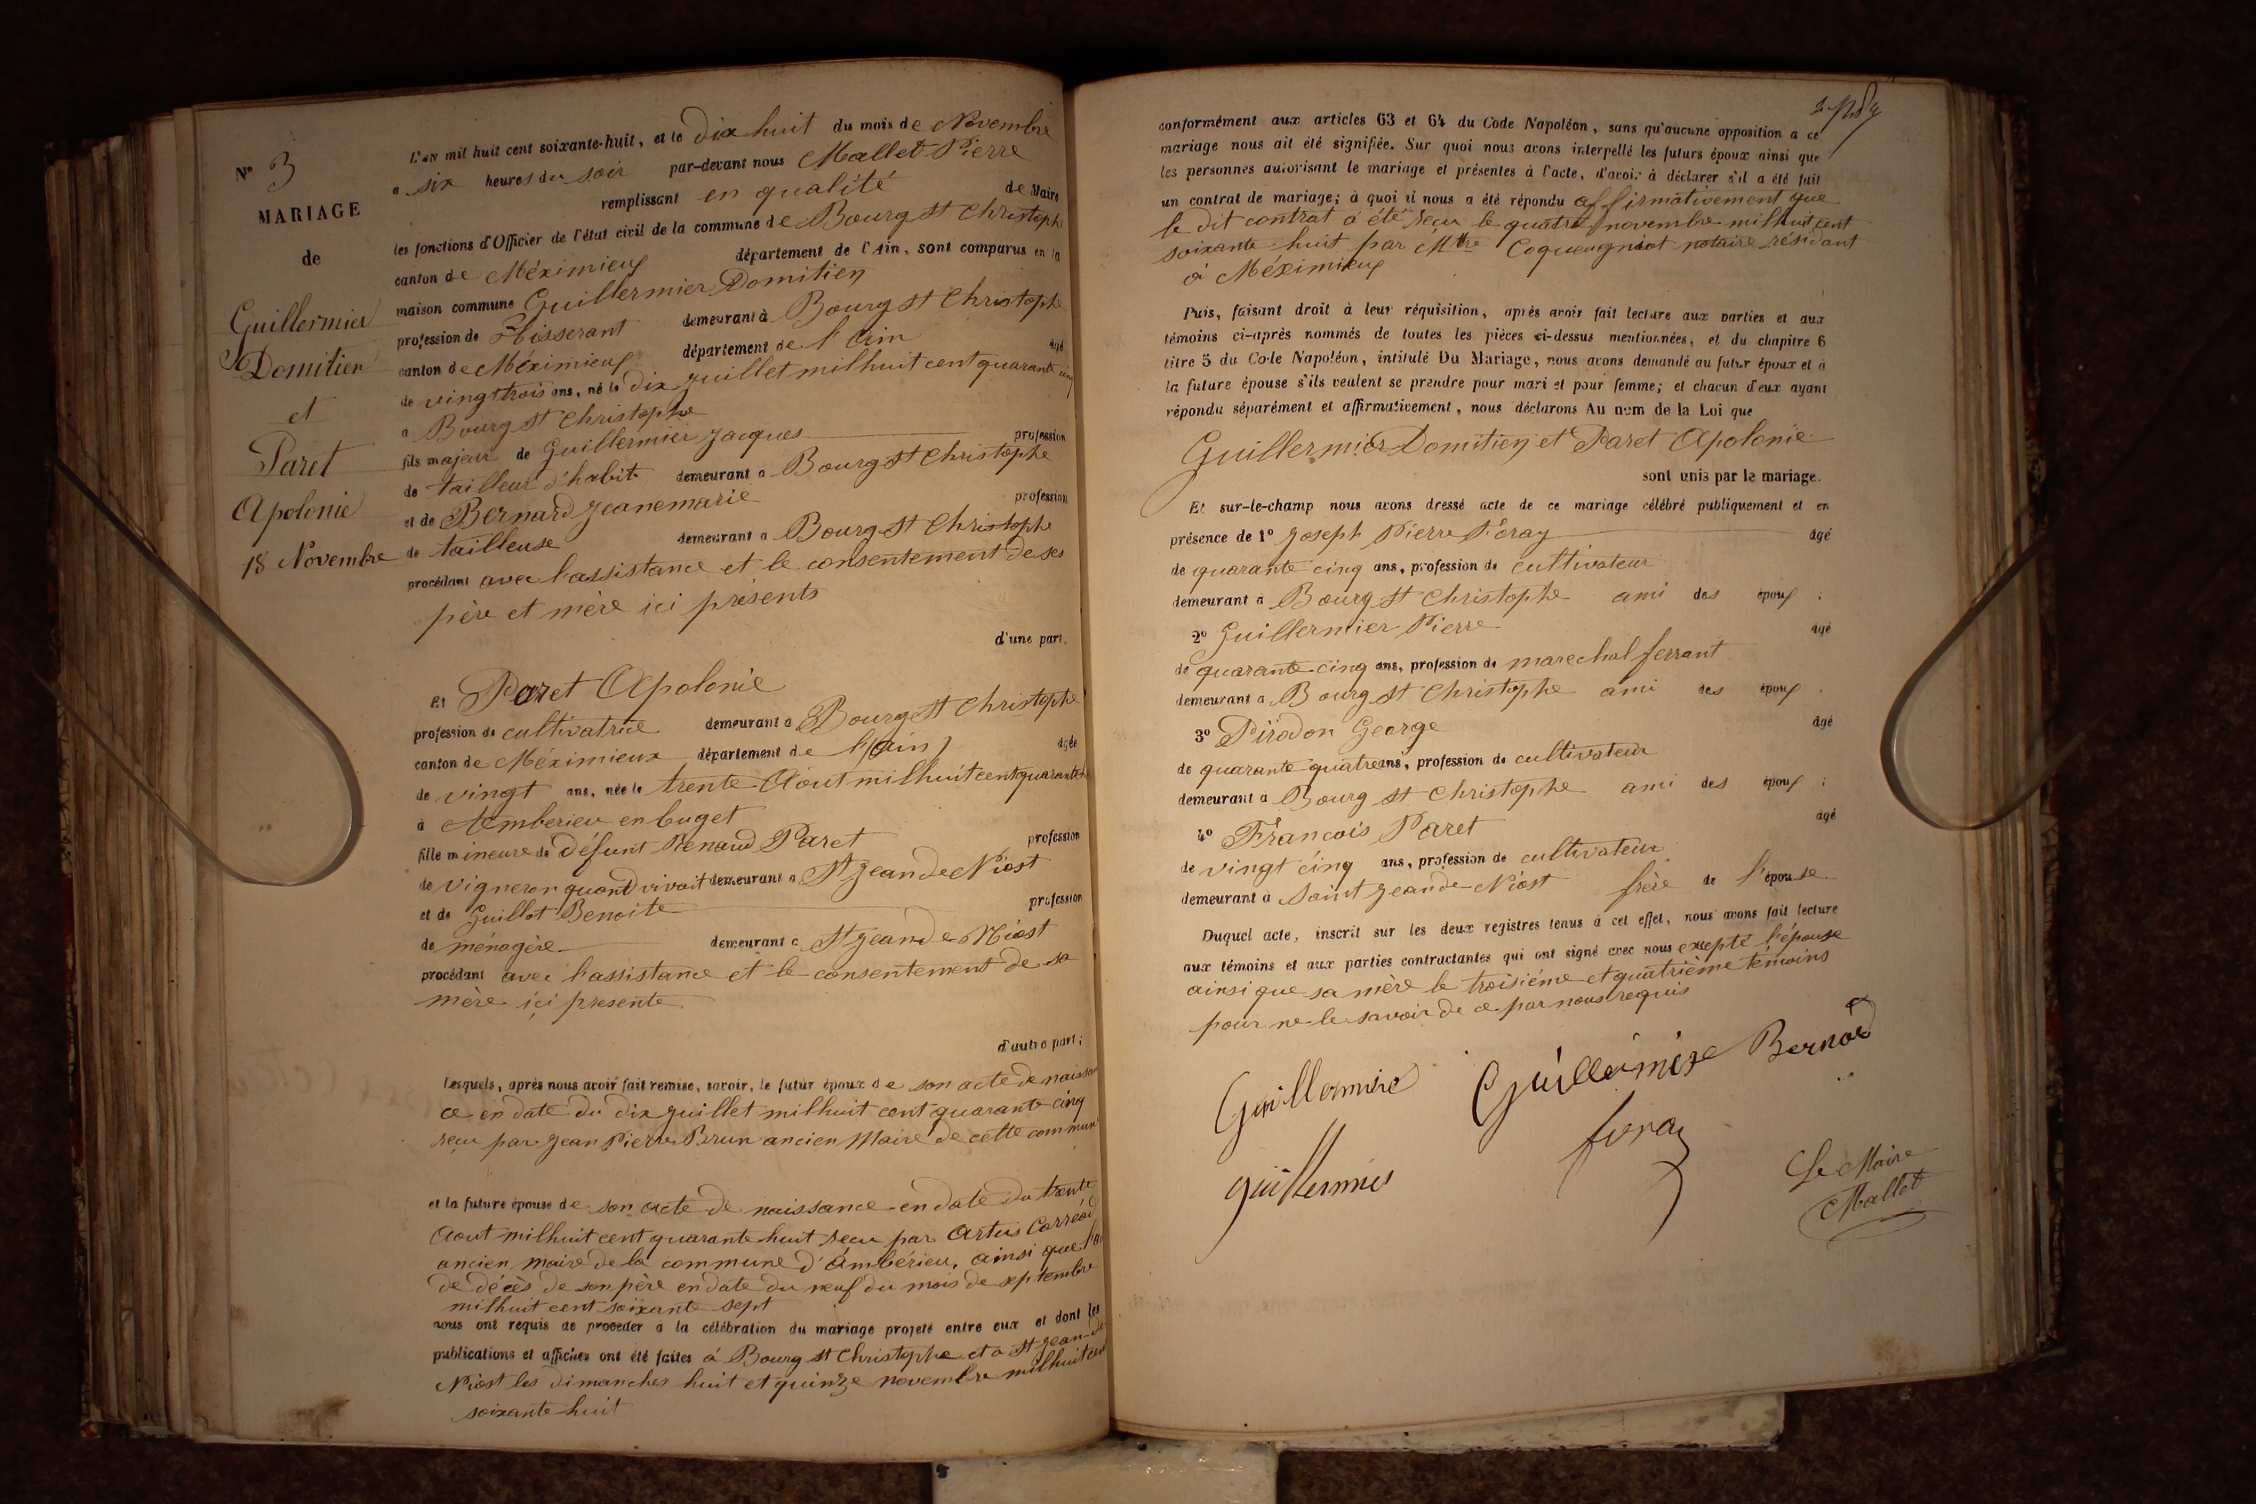 N° 3
MARIAGE
de
Guillermier
Domitien
et
Paret
Apolonie
18 Novembre
L'an mil huit cent soixante-huit, et le dix huit du mois de Novembre
a six heures du soir par-devant nous Mallet Pierre
remplissant en qualité de Maire
les fonctions d'Officier de l'état civil de la commune de Bourg St Christophe
canton de Méximieux département de l'Ain, sont comparus en la
maison commune Guillermier Domitien
profession de Tisserant demeurant à Bourg St Christophe
canton de Méximieux département de l'Ain agé
de vingt trois ans, né le dix Juillet mil huit cent quarante cinq
a Bourg St Christophe
fils majeur de Guillermier Jacques profession
de tailleur d'habit demeurant a Bourg St Christophe
et de Bernard Jeanemarie profession
de tailleuse demeurant a Bourg St Christophe
procédant avec l'assistance et le consentement de ses
père et mère ici présents
d'une part.
Et Paret Apolonie
profession de cultivatrice demeurant a Bourg St Christophe
canton de Méximieux département de l'ain agée
de vingt ans, née le trente Aout mil huit cent quarante
à Amberieu en buget
fille mineure de défunt Renaud Paret profession
de vigneron quand vivait demeurant a St Jean de Niost
et de Guillot Benoite profession
de ménagère demeurant a St Jean de Niost
procédant avec l'assistance et le consentement de sa
mère ici presente
d'autre part;
Lesquels, après nous avoir fait remise, savoir, le futur époux de son acte de naissan
ce en date du dix Juillet mil huit cent quarante cinq
reçu par Jean Pierre Brun ancien Maire de cette commune
et la future épouse de son acte de naissance en date du trente
Aout mil huit cent quarante huit recu par Artus
ancien maire de la commune d'Ambérieu, ainsi que
de décès de son père en date du neuf du mois de septembre
mil huit cent soixante sept
nous ont requis de proceder a la célébration du mariage projeté entre eux et dont les
publications et affiches ont été faites à Bourg St Christophe et a St Jean de
Niost les dimanches huit et quinze novembre mil huit cent
soixante huit
conformément aux articles 63 et 64 du Code Napoléon, sans qu'aucune opposition a ce
mariage nous ait été signifiée. Sur quoi nous avons interpellé les futurs époux ainsi que
les personnes autorisant le mariage et présentes à l'acte, d'avoir à déclarer s'il a été fait
un contrat de mariage; à quoi il nous a été répondu affirmativement que
le dit contrat a été reçu le quatre novembre mil huit cent
soixante huit par Mtre Coqueugniot notaire résidant
à Méximieux
Puis, faisant droit à leur réquisition, après avoir fait lecture aux parties et aux
témoins ci-après nommés de toutes les pièces ci-dessus mentionnées, et du chapitre 6
titre 5 du Code Napoléon, intitulé Du Mariage, nous avons demandé au futur époux et à
la future épouse s'ils veulent se prendre pour mari et pour femme; et chacun d'eux ayant
répondu séparément et affirmativement, nous déclarons Au nom de la Loi que
Guillermier Domitien et Paret Apolonie
sont unis par le mariage.
Et sur-le-champ nous avons dressé acte de ce mariage célébré publiquement et en
présence de 1° Joseph Pierre Foray agé
de quarante cinq ans, profession de cultivateur
demeurant a Bourg St Christophe ami des époux;
2° Guillermier Pierre agé
de quarante cinq ans, profession de marechal ferrant
demeurant a Bourg St Christophe ami des époux.
3° Pirodon George agé
de quarante quatre ans, profession de cultivateur
demeurant a Bourg St Christophe ami des époux;
4° François Paret agé
de vingt cinq ans, profession de cultivateur
demeurant a Saint Jean de Niost frère de l'épouse.
Duquel acte, inscrit sur les deux registres tenus à cet effet, nous avons fait lecture
aux témoins et aux parties contractantes qui ont signé avec nous excepté l'épouse
ainsi que sa mère le troisiéme et quatrième témoins
pour ne le savoir de ce par nous requis
Guillermire Guillermier Bernard
guillermier foray
Le Maire
Mallet